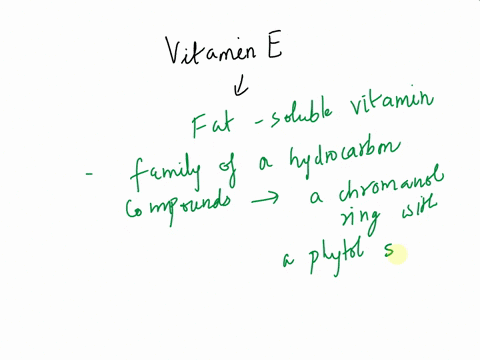 Vitamin E
↓
Fat - soluble vitamin
- family of a hydrocarbon
compounds → a chromanol
ring with
a phytol s